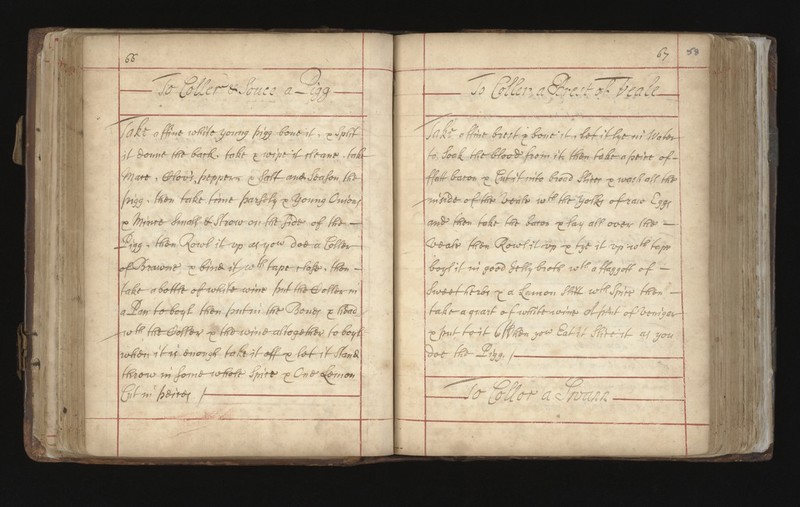 66
To Coller & Souce a Pigg
Take a ffine white young pigg bone it, & Split
it downe the back, take & wipe it cleane, take
Mace, Cloves, pepper, & Salt and Season the
pigg, then take time parsely & young Onions
& Mince Small & Strow on the Side of the
Pigg, then Rowl it up as you doe a Coller
of Brawne, & bind it wth tape close, then
take a bottle of white wine put the Coller in
a Pan to boyl then put in the Bones & Head
wth the Coller & the wine altogether to boyl
when it is enough take it off & let it Stand
throw in Some whole Spice & One Lemon
Cut in peices
67
58
To Coller a Brest of Veale
Take a ffine brest & bone it, let it lye in Water
to Soak the blood from it, then take a peice of
fflatt bacon & Cut it into broad Slices & wash all the
inside of the Veale wth the Yolks of raw Eggs
and then take the bacon & lay all over the
Veale then Rowl it up & tye it up wth tape
boyl it in good Jelly broth wth a ffaggott of
Sweet herbs & a Lamon Slitt wth Spice then
take a quart of white wine a pint of Veniger
& put to it When you Eat it Slice it as you
doe the Pigg
To Coller a Swann